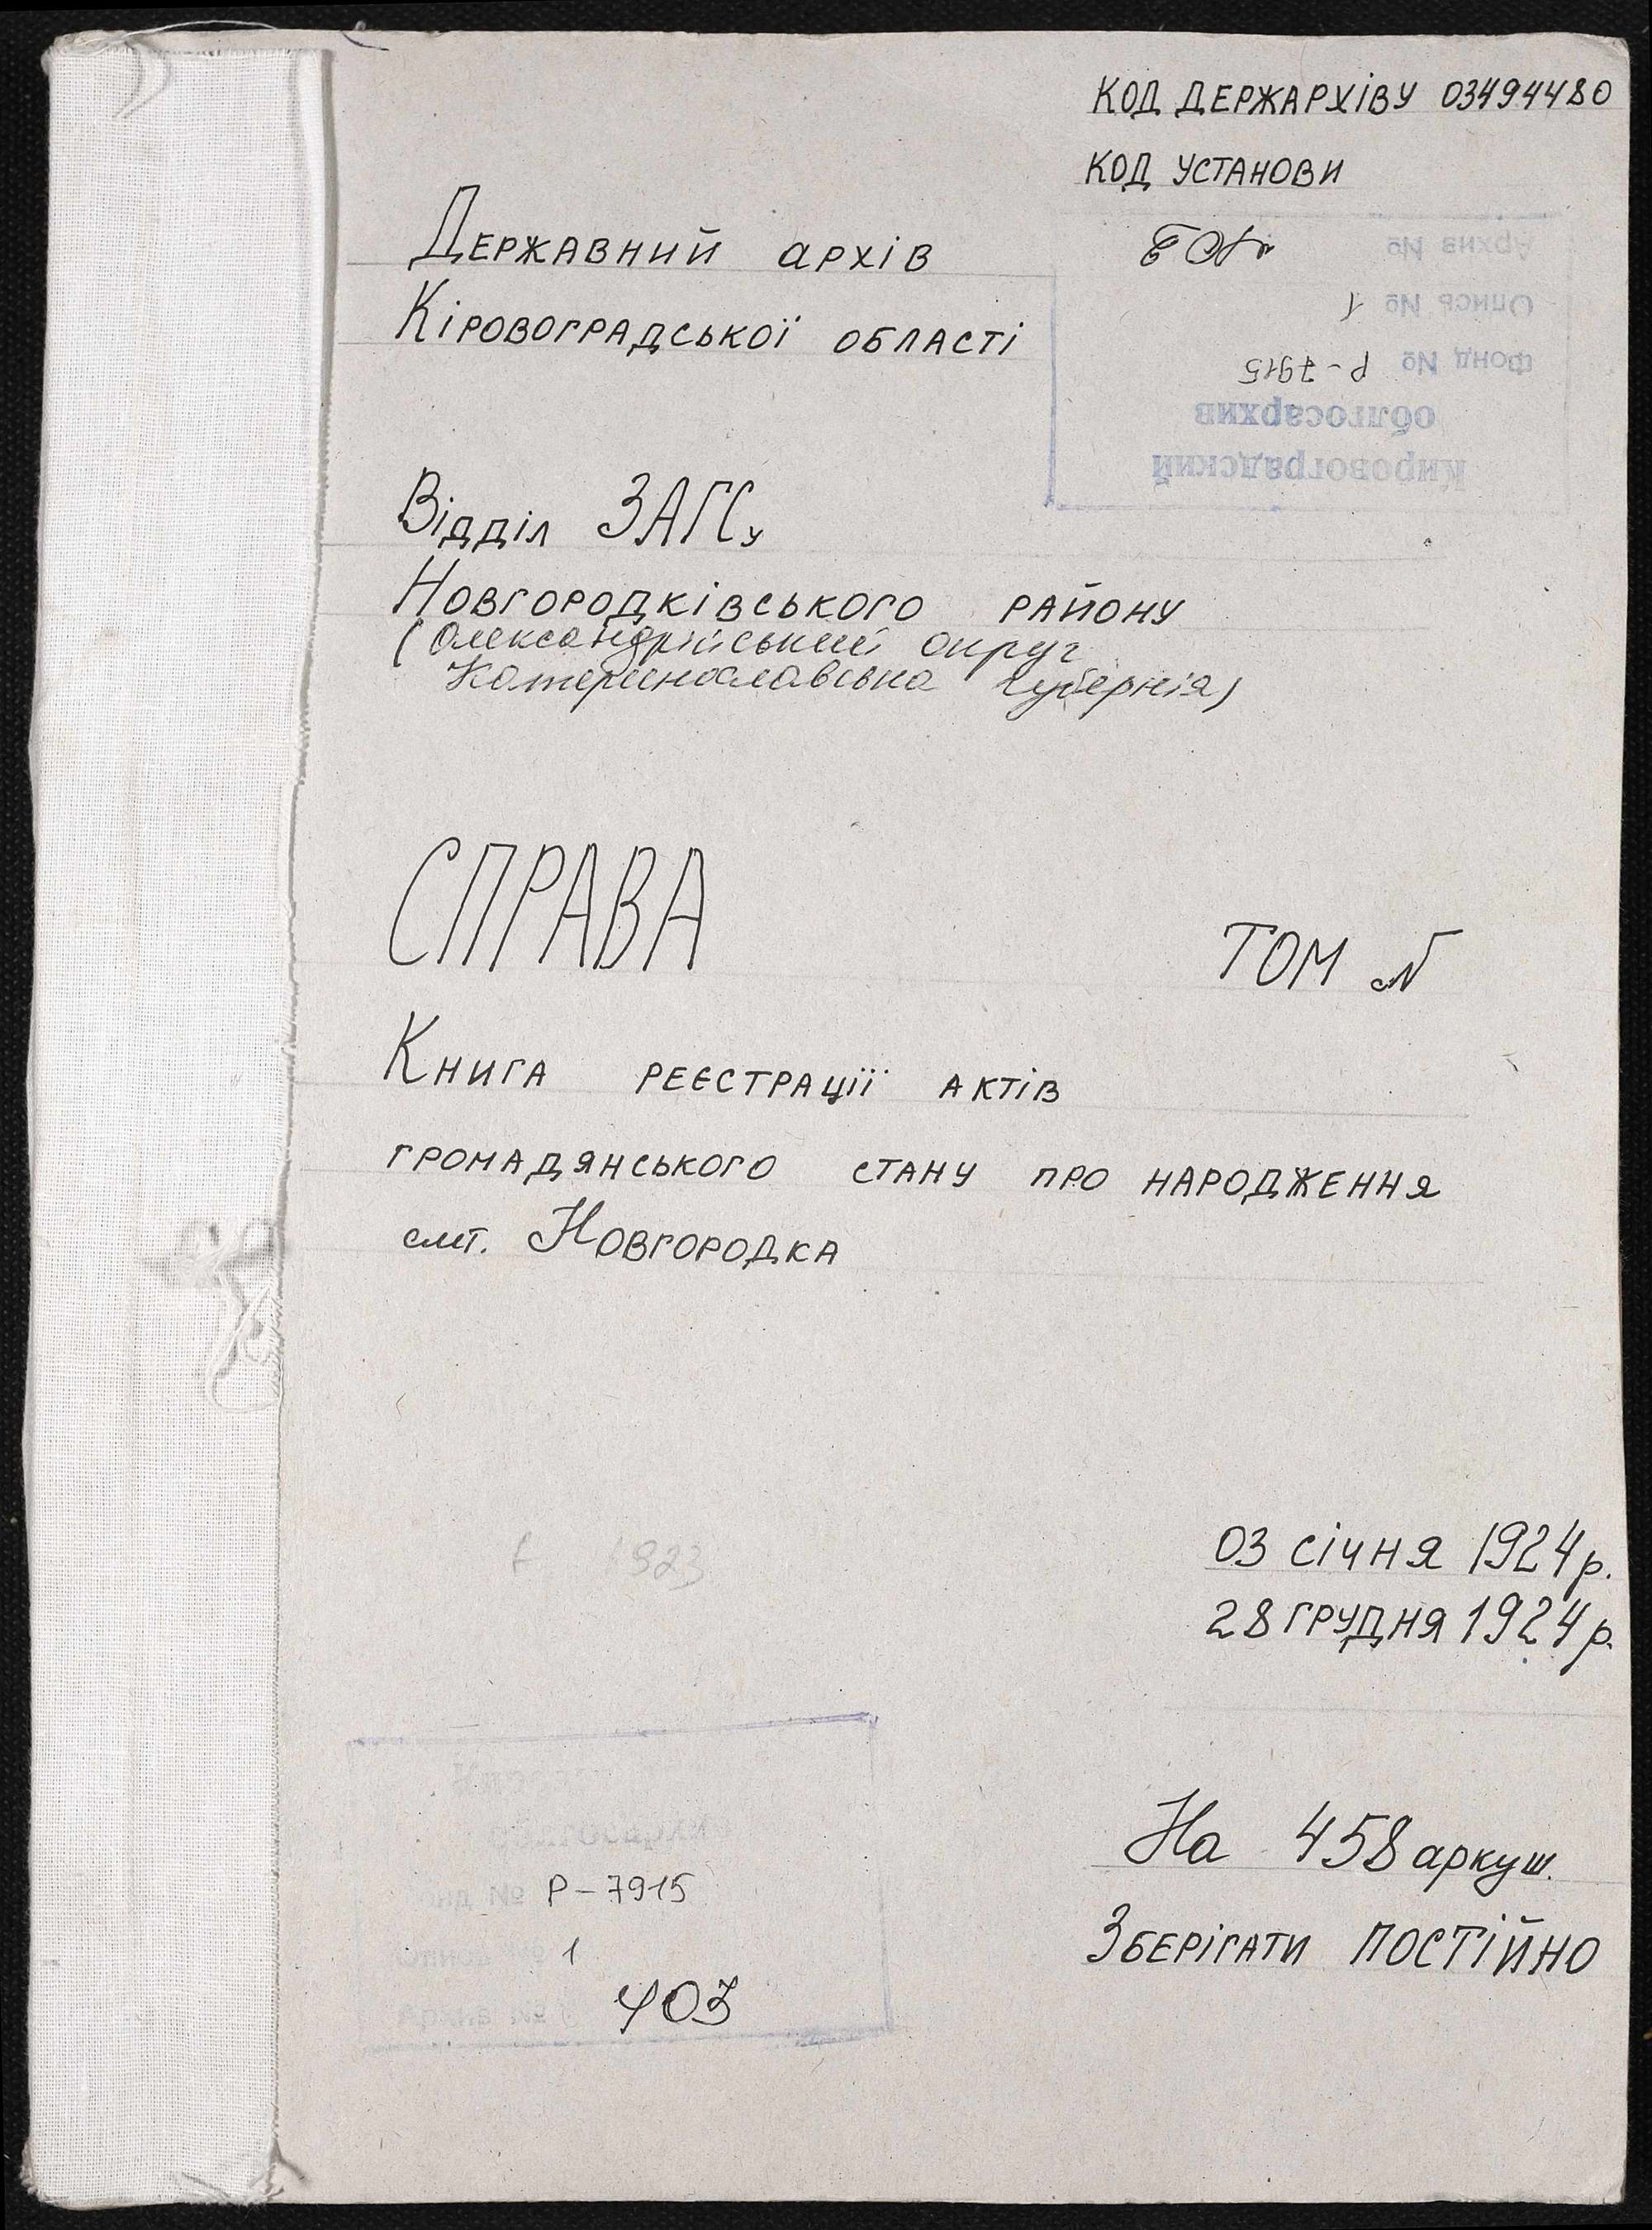 КОД ДЕРЖАРХІВУ 03494480
КОД УСТАНОВИ
Державний архів
Кіровоградської області
Кировоградский
облгосархив
Фонд № Р-7915
Опись № 1
Архив № 403
Відділ ЗАГСу
Новгородківського району
(Олександрійський округ
Катеринославська губернія)
СПРАВА
ТОМ №
Книга реєстрації актів
громадянського стану про народження
смт. Новгородка
1923
03 січня 1924р.
28 грудня 1924р.
На 458 аркуш.
Зберігати постійно
Р-7915
1
403